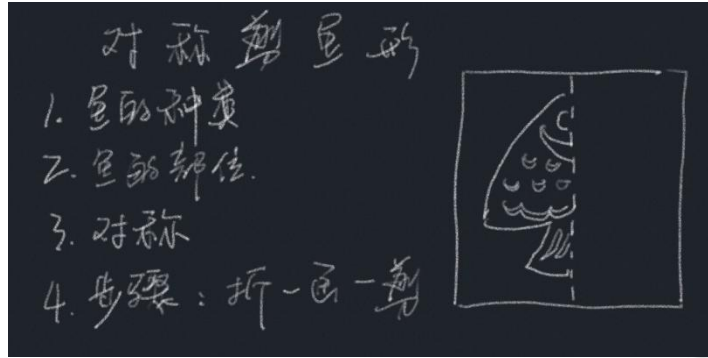 对称剪鱼形
1. 鱼的种类
2. 鱼的部位.
3. 对称
4. 步骤：折一画一剪